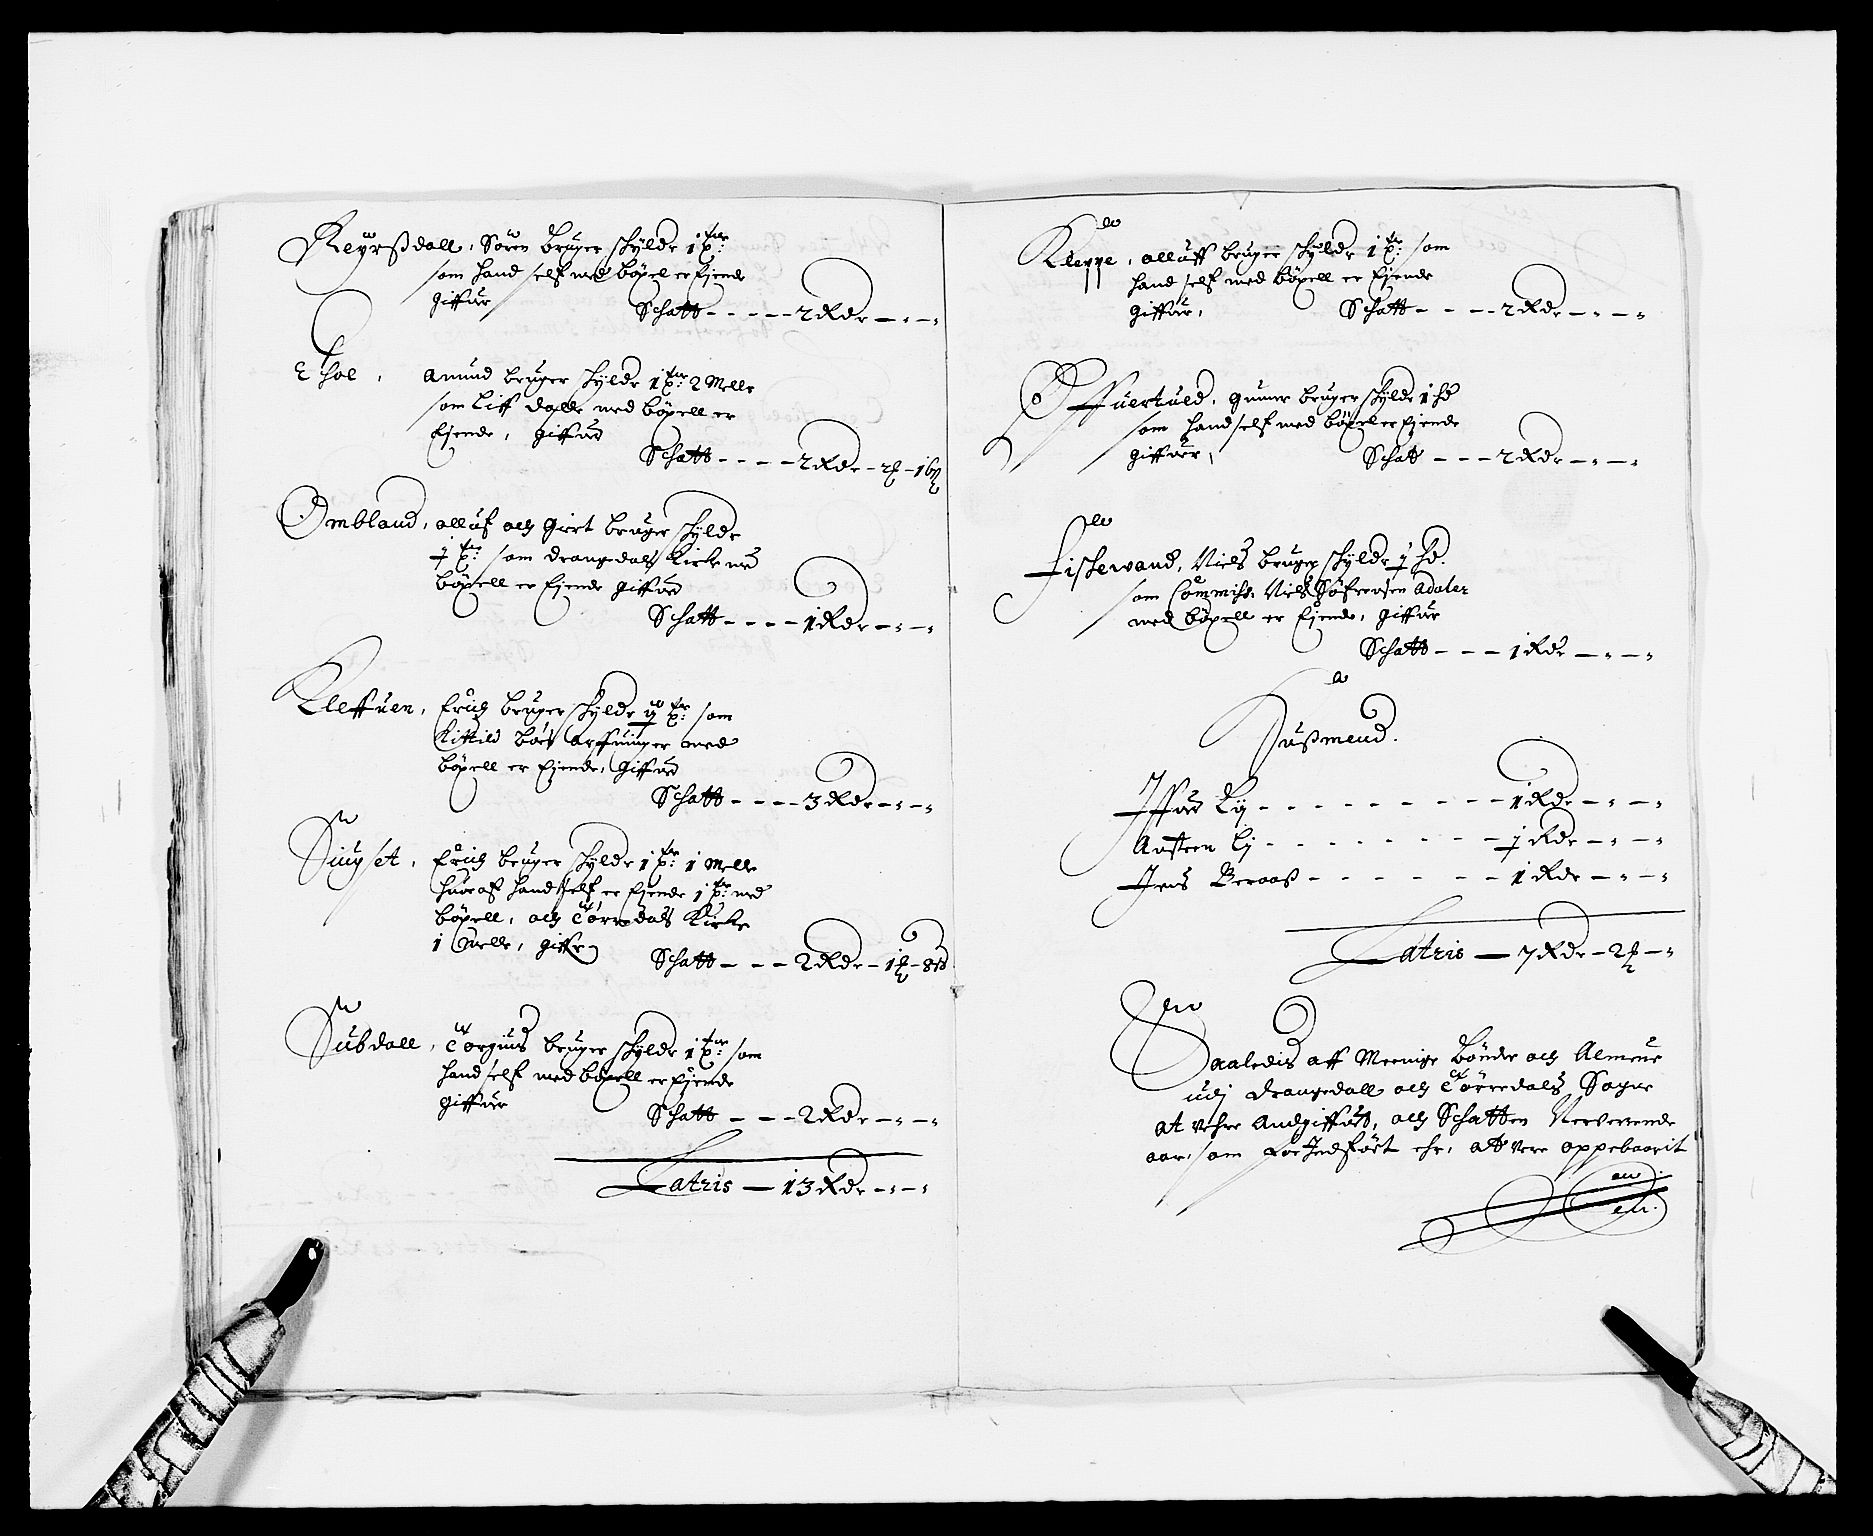 Røyrßdall, Søren bruger skylder 1 tne
som hand self med bøxel er Ejende
giffuer
Schatt - - - - - 2 Rdr - " - "
Hoe, Amund bruger skylder 1 tne: 2 Melle
som Liff Dalle med bøxell er
Ejende, giffuer
Schatt - - - - 2 Rdr - 2 - 16
Ombland, alluf och Giert bruger skylder
tr: som Drangedals Kirke med
bøxell er Ejende giffuer
Schatt - - - - 1 Rdr - " - "
Kleffuen, Erich bruger skylder tr: som
Kittild børs Arffuinger med
bøxell er Ejende, giffuer
Schatt - - - - 3 Rdr - " - "
Siugset, Erich bruger skylder 1 tr: 1 Melle
huoraf hand self er Ejende 1 tr: med
bøxell, och Tørredals Kirke
1 Melle, giffr
Schatt - - - 2 Rdr - 1 - 8
Subdall, Torgius bruger skylder 1 tne: som
hand self med bøxell er Ejende
giffuer
Schatt - - - 2 Rdr - " - "
Latris - 13 Rdr - " - "
Kleppe, alluff bruger skylder 1 tr: som
hand self med bøxell er Ejende
giffuer,
Schatt - - - - 2 Rdr - " - "
Offuertued, Gunner bruger skylder 1 hd
som hand self med bøxel er Ejende
giffuer,
Schat - - - 2 Rdr - " - "
Fiskewand, Niels bruger skylder hd.
som Commiss: Niels Søfrensen Adaler
med bøxell er Ejende, giffuer
Schatt - - - 1 Rdr - " - "
Hußmend.
Iffuer Lij - - - - - - - - - 1 Rdr - " - "
Aasteen Lij - - - - - - - - Rdr - " - "
Jens Beraas - - - - - - 1 Rdr - " - "
Latris - 7 Rdr - 2 - "
Saaledis aff Meenige Bønder och Almue
udj Drangedall och Tørredals Sogne
at vehre Andgiffuet, och Schatten Nerverende
aar, som for Indført ehr, at vere oppebaarit